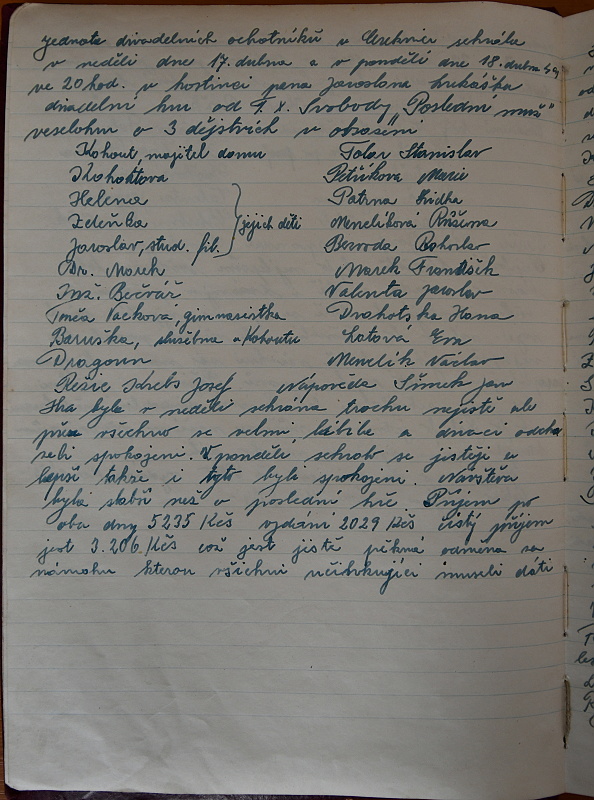 Jednota divadelních ochotníků v sehrála
v neděli dne 17. dubna a v pondělí dne 18. dubna 49
ve 20 hod. v hostinci pana Jaroslava Lukáška
divadelní hru od F. X. Svobody „Poslední muž"
veselohru o 3 dějstvích v obsazení
Kohout, majitel domu Tolar Stanislav
Kohoutova Petříkova Marie
Helena Patrna Lidka
Zdeňka Menclíková Růžena
jejich děti
Jaroslav, stud. fil. Bezvoda Bohuslav
Dr. Marek Marek František
Inž. Bečvář Valenta Jaroslav
Tonča Vacková, gimnasistka Drahotska Hana
Baruška, služebna u Kohoutu Látová Eva
Dragoun Menclík Václav
Režie Krebs Josef Nápověda Šimek Jan
Hra byla v neděli sehrána trochu nejistě ale
přes všechno se velmi líbila a diváci odchá
zeli spokojeni. V pondělí sehrála se jistěji a
lepší takže i tyto byli spokojeni. Navštěva
byla slabší než v poslední hře. Příjem po
oba dny 5235 Kčs vydání 2029 Kčs čistý příjem
jest 3.206 Kčs což jest jistě pěkná odměna za
námahu kterou všichni učinkující museli dáti